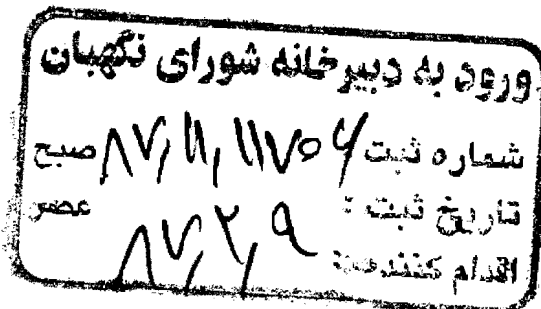 ورود به دبیرخانه شورای نگهبان
شماره ثبت ۸۷٫۱۱٫۱۱۷۰۶ صبح
تاریخ ثبت : ۸۷٫۲٫۹ عصر
اقدام کننده: